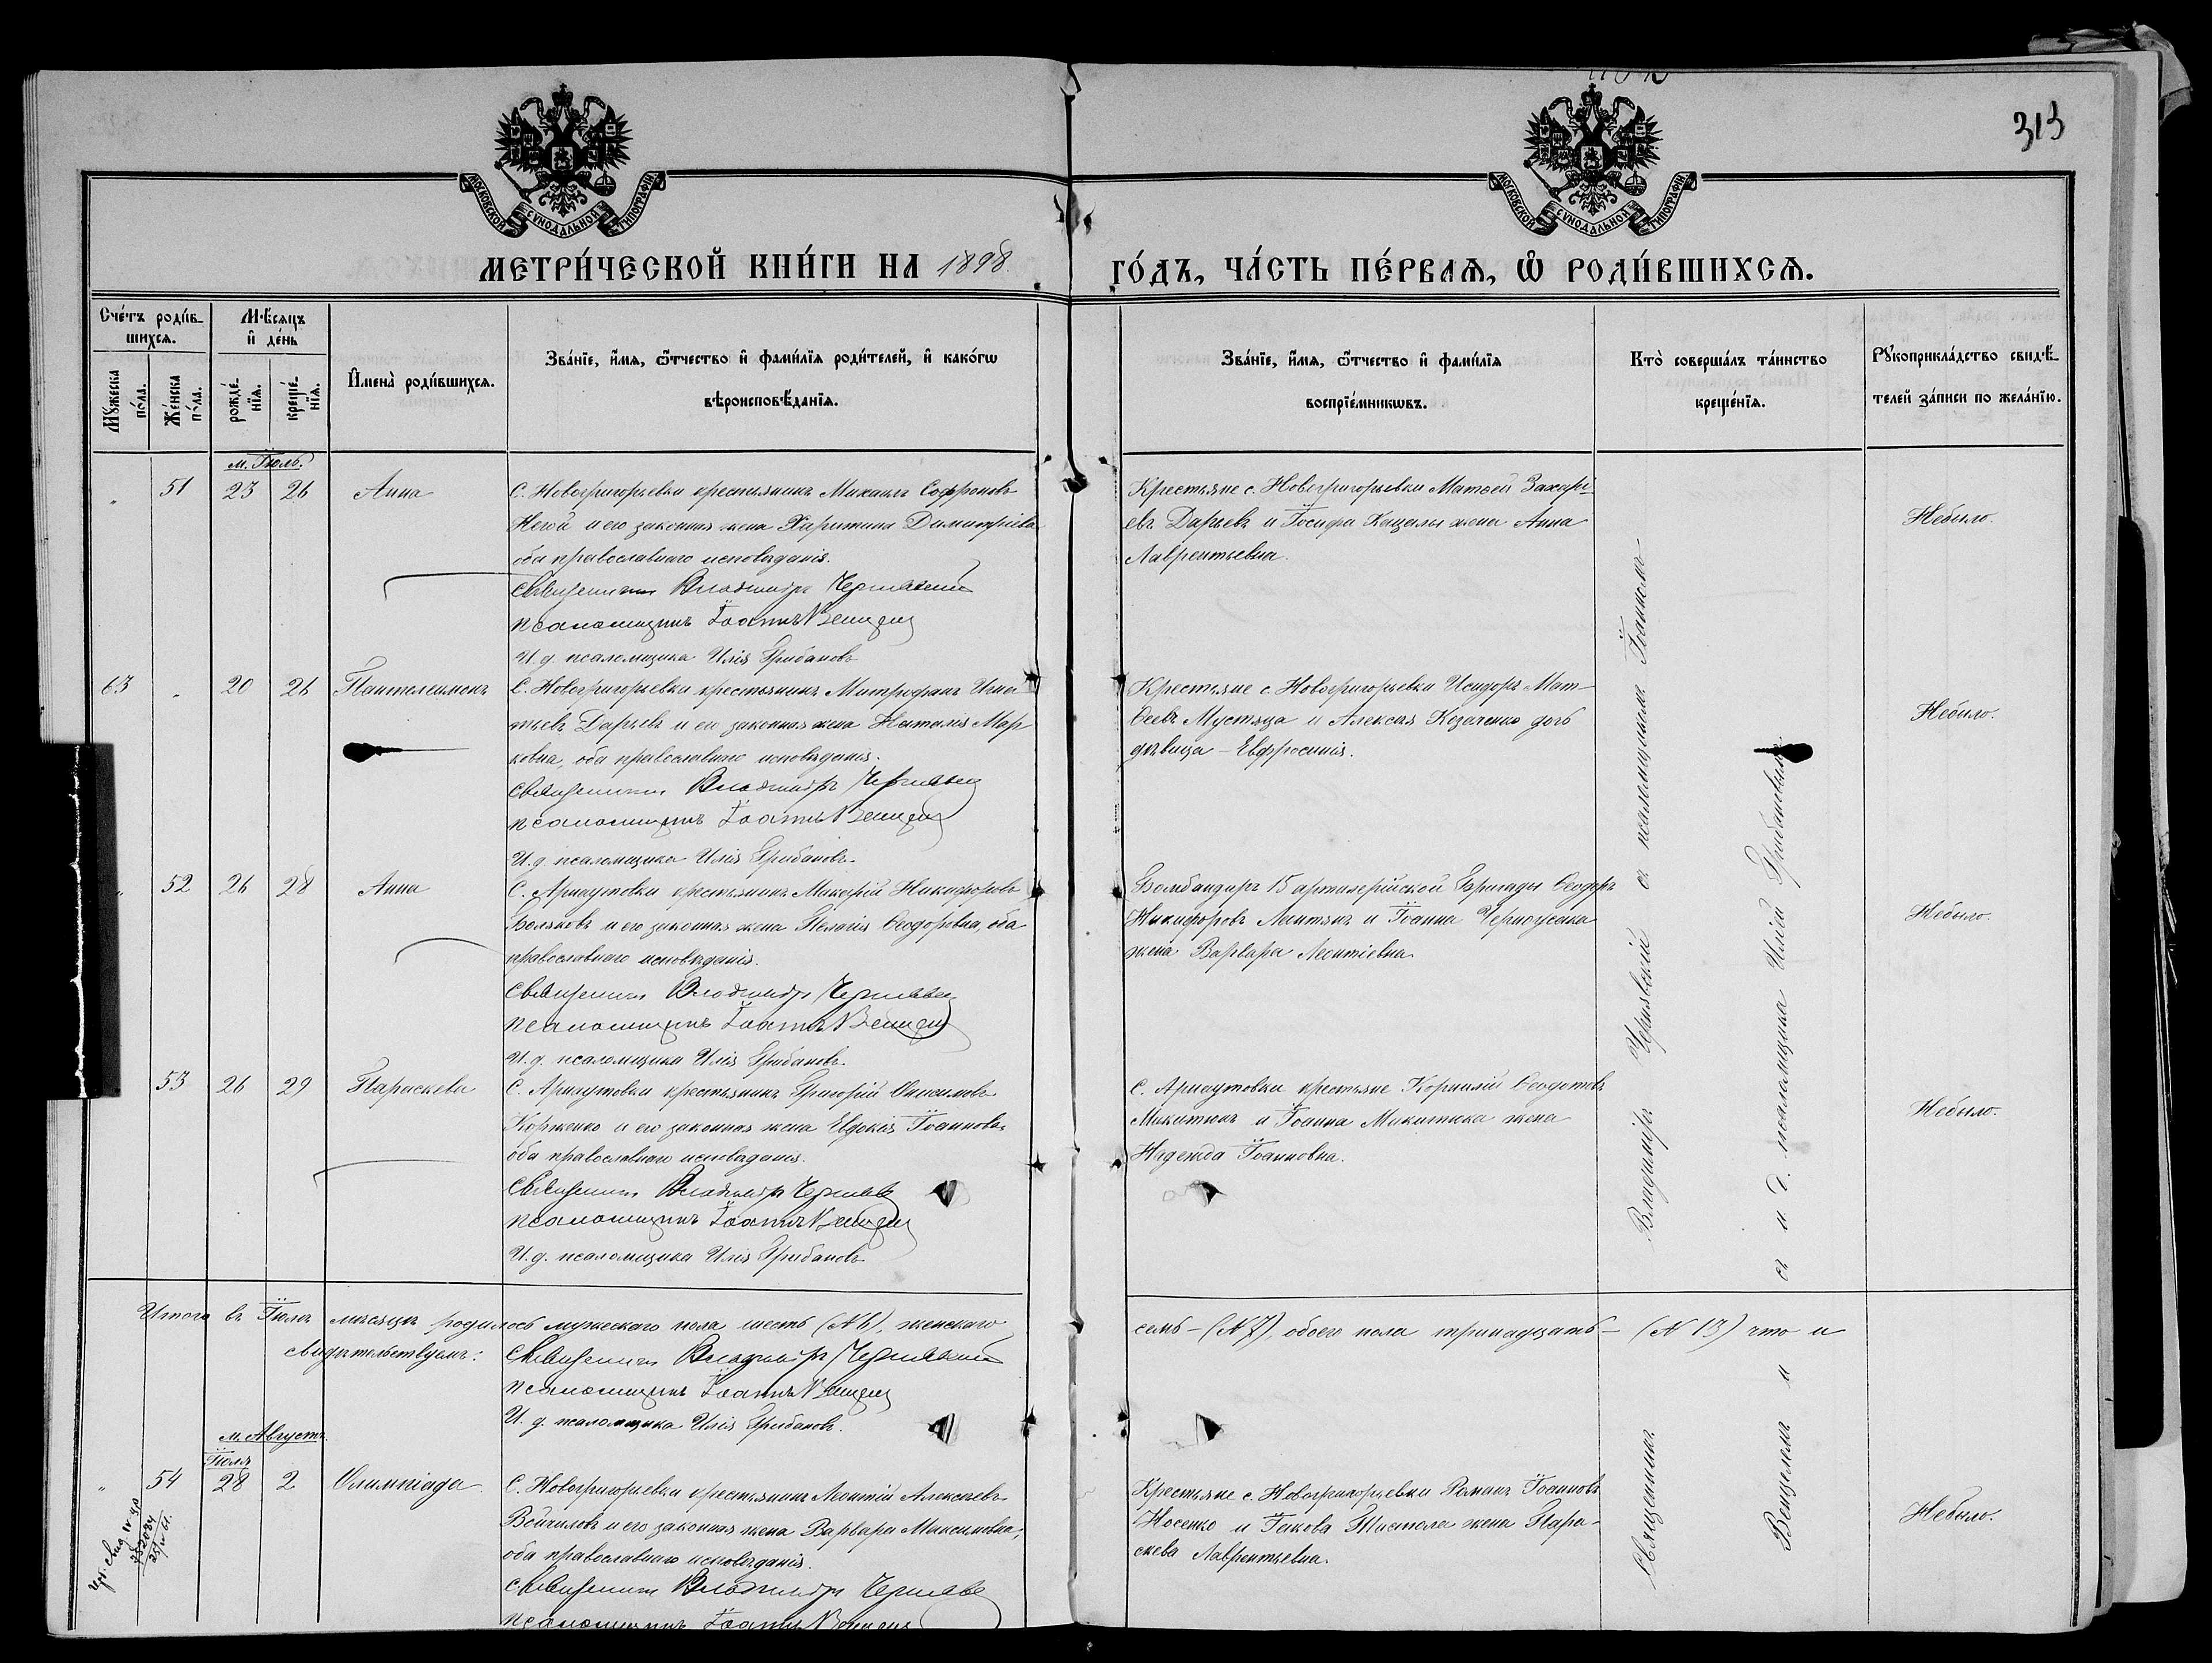 313
МОСКОВСКОЙ СѴНОДАЛЬНОЙ ТИПОГРАФІИ
МОСКОВСКОЙ СѴНОДАЛЬНОЙ ТИПОГРАФІИ
МЕТРИ́ЧЕСКОЙ КНИ́ГИ НА 1898.
ГО́ДЪ, ЧА́СТЬ ПЕ́РВАѦ, Ѡ҆ РОДИ́ВШИХСѦ.
Сче́тъ роди́в-
шихсѧ.
Мꙋ́жеска
по́ла.
Же́нска
по́ла.
Мѣ́сѧцъ
и҆ де́нь
рожде́-
нїѧ.
креще́-
нїѧ.
И҆мена̀ роди́вшихсѧ.
Зва́нїе, и҆́мѧ, ѻ҆́тчество и҆ фами́лїѧ роди́телей, и҆ како́гѡ
вѣроисповѣ́данїѧ.
Зва́нїе, и҆́мѧ, ѻ҆́тчество и҆ фами́лїѧ
воспрїе́мникѡвъ.
Кто̀ соверша́лъ та́инство
креще́нїѧ.
Рꙋкоприкла́дство свидѣ́-
телей за́писи по жела́нїю.
м. Іюль.
" 51 23 26 Анна
С. Новогригорьевки крестьянинъ Михаилъ Софроновъ
Негой и его законная жена Харитина Димитріева
оба православнаго исповѣданія.
Священникъ Владиміръ Чернявскій
псаломщикъ Іоаннъ Венцелъ
И. д. псаломщика Илія Грибановъ
Крестьяне с. Новогригорьевки Матѳей Захарі-
евъ Дарьевъ и Іосифа Кацалы жена Анна
Лаврентьевна.
Небыло.
63 " 20 26 Пантелеимонъ
С. Новогригорьевки крестьянинъ Митрофанъ Игна-
тьевъ Дарьевъ и его законная жена Наталія Мар-
ковна, оба православнаго исповѣданія.
Священникъ Владиміръ Чернявскій
псаломщикъ Іоаннъ Венцелъ
И. д. псаломщика Илія Грибановъ
Крестьяне с. Новогригорьевки Исидоръ Мат-
ѳеевъ Мустяца и Алексѣя Козаченко дочь
дѣвица - Евфросинія.
Небыло.
" 52 26 28 Анна
С. Арнаутовки крестьянинъ Макарій Никифоровъ
Боляковъ и его законная жена Пелагія Ѳеодоровна, оба
православнаго исповѣданія.
Священникъ Владиміръ Чернявскій
псаломщикъ Іоаннъ Венцелъ
И. д. псаломщика Илія Грибановъ
Бомбандиръ 15 артилерійской бригады Ѳеодоръ
Никифоровъ и Іоанна Черноусенка
жена Варвара Леонтіевна
Небыло.
" 53 26 29 Параскева
С. Арнаутовки крестьянинъ Григорій Онисимовъ
Корженко и его законная жена Евдокія Іоаннова,
оба православнаго исповѣданія.
Священникъ Владиміръ Чернявскій
псаломщикъ Іоаннъ Венцелъ
И. д. псаломщика Илія Грибановъ
С. Арнаутовки крестьяне Корнилій Ѳеодотовъ
Микитюкъ и Іоанна Микитюка жена
Надежда Іоанновна.
Небыло.
Итого въ Іюлѣ мѣсяцѣ родилось мужескаго пола шесть (№ 6), женскаго
семь - (№ 7), обоего пола тринадцать - (№ 13) что и
свидѣтельствуемъ:
Священникъ Владиміръ Чернявскій
псаломщикъ Іоаннъ Венцелъ
И. д. псаломщика Илія Грибановъ.
м. Августъ.
Іюля
" 54 28 2 Олимпіада
С. Новогригорьевки крестьянинъ Леонтій Алексѣевъ
Войчиловъ и его законная жена Варвара Максимовна,
оба православнаго исповѣданія.
Священникъ Владиміръ Чернявскій
псаломщикъ Іоаннъ Венцелъ
Крестьяне с. Новогригорьевки Романъ Іоанновъ
Носенко и Іакова Тистола жена Пара-
скева Лаврентьевна.
Небыло.
Священникъ Владиміръ Чернявскій съ псаломщикомъ Іоанномъ
Венцелемъ и съ и. д. псаломщика Иліей Грибановымъ